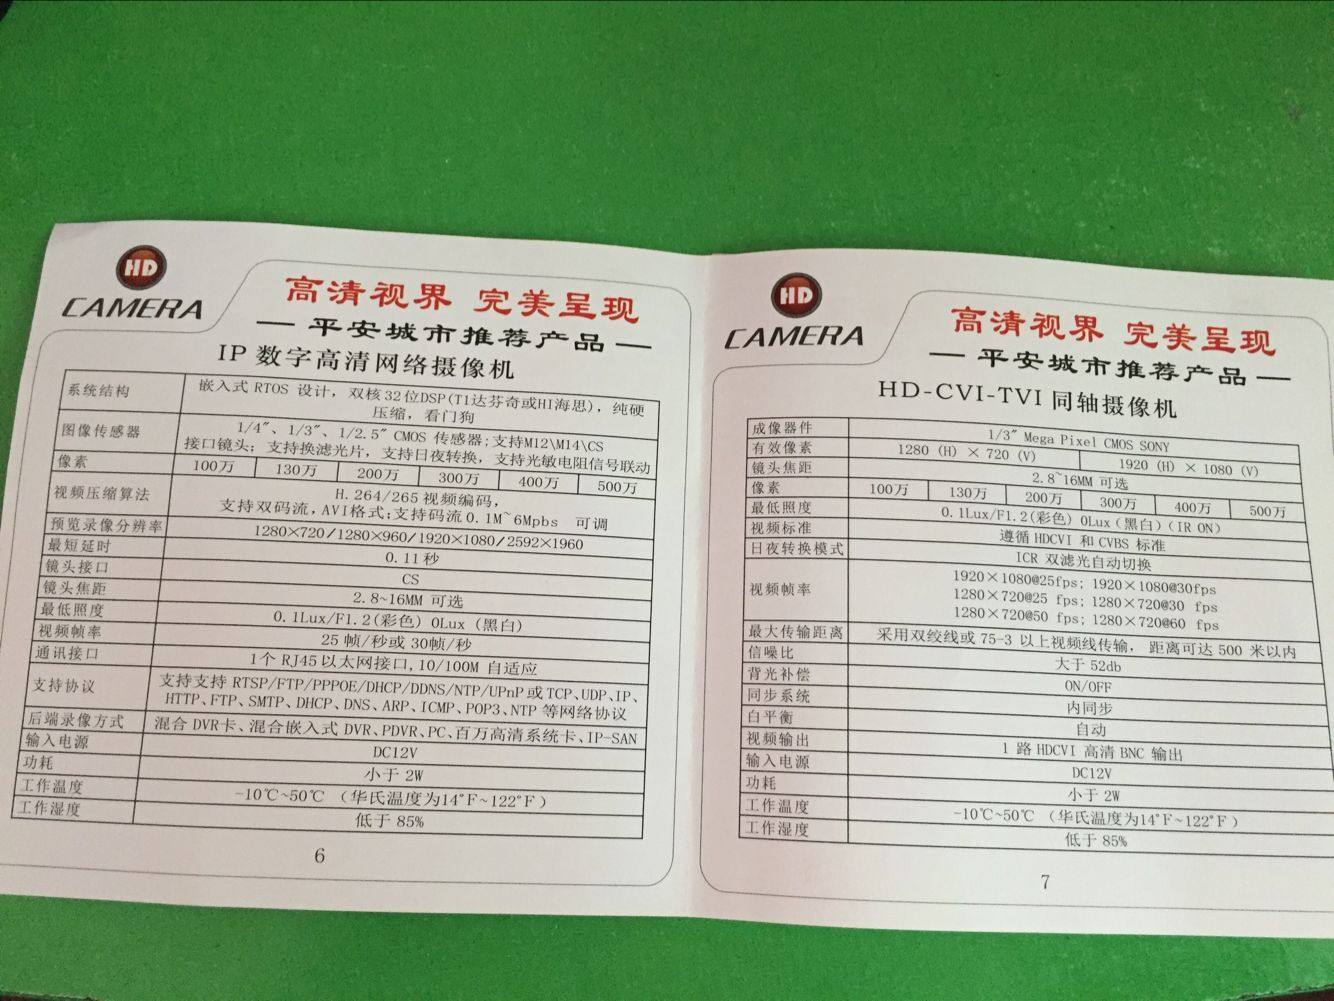 HD
CAMERA
高清视界 完美呈现
— 平安城市推荐产品 —
IP 数字高清网络摄像机
系统结构 嵌入式 RTOS 设计，双核32位DSP(T1达芬奇或HI海思)，纯硬
压缩，看门狗
图像传感器 1/4"、1/3"、1/2.5" CMOS 传感器;支持M12\M14\CS
接口镜头；支持换滤光片，支持日夜转换，支持光敏电阻信号联动
像素 100万 130万 200万 300万 400万 500万
视频压缩算法 H.264/265 视频编码，
支持双码流，AVI格式;支持码流 0.1M~6Mpbs 可调
预览录像分辨率 1280×720/1280×960/1920×1080/2592×1960
最短延时 0.11秒
镜头接口 CS
镜头焦距 2.8~16MM 可选
最低照度 0.1Lux/F1.2(彩色) 0Lux (黑白)
视频帧率 25 帧/秒或 30帧/秒
通讯接口 1个 RJ45 以太网接口, 10/100M 自适应
支持协议 支持支持 RTSP/FTP/PPPOE/DHCP/DDNS/NTP/UPnP 或 TCP、UDP、IP、
HTTP、FTP、SMTP、DHCP、DNS、ARP、ICMP、POP3、NTP 等网络协议
后端录像方式 混合 DVR卡、混合嵌入式 DVR、PDVR、PC、百万高清系统卡、IP-SAN
输入电源 DC12V
功耗 小于 2W
工作温度 -10℃~50℃ （华氏温度为14°F~122°F）
工作湿度 低于 85%
6
HD
CAMERA
高清视界 完美呈现
— 平安城市推荐产品 —
HD-CVI-TVI 同轴摄像机
成像器件 1/3" Mega Pixel CMOS SONY
有效像素 1280 (H) × 720 (V) 1920 (H) × 1080 (V)
镜头焦距 2.8~16MM 可选
像素 100万 130万 200万 300万 400万 500万
最低照度 0.1Lux/F1.2(彩色) 0Lux (黑白) (IR ON)
视频标准 遵循 HDCVI 和 CVBS 标准
日夜转换模式 ICR 双滤光自动切换
视频帧率 1920×1080@25fps; 1920×1080@30fps
1280×720@25 fps; 1280×720@30 fps
1280×720@50 fps; 1280×720@60 fps
最大传输距离 采用双绞线或 75-3 以上视频线传输， 距离可达 500 米以内
信噪比 大于 52db
背光补偿 ON/OFF
同步系统 内同步
白平衡 自动
视频输出 1 路 HDCVI 高清 BNC 输出
输入电源 DC12V
功耗 小于 2W
工作温度 -10℃~50℃ （华氏温度为14°F~122°F）
工作湿度 低于 85%
7